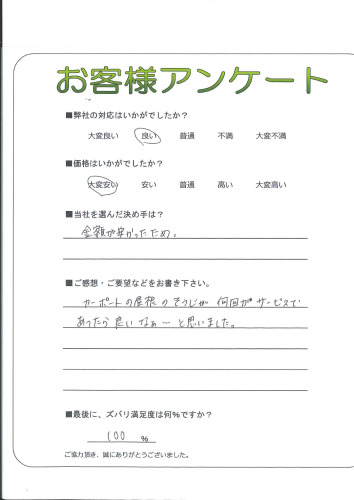 お客様アンケート
■弊社の対応はいかがでしたか?
大変良い 良い 普通 不満 大変不満
■価格はいかがでしたか?
大変安い 安い 普通 高い 大変高い
■当社を選んだ決め手は?
金額が安かったため。
■ご感想・ご要望などをお書き下さい。
カーポートの屋根のそうじが何回かサービスで
あったら良いなぁーと思いました。
■最後に、ズバリ満足度は何%ですか?
100 %
ご協力頂き、誠にありがとうございました。